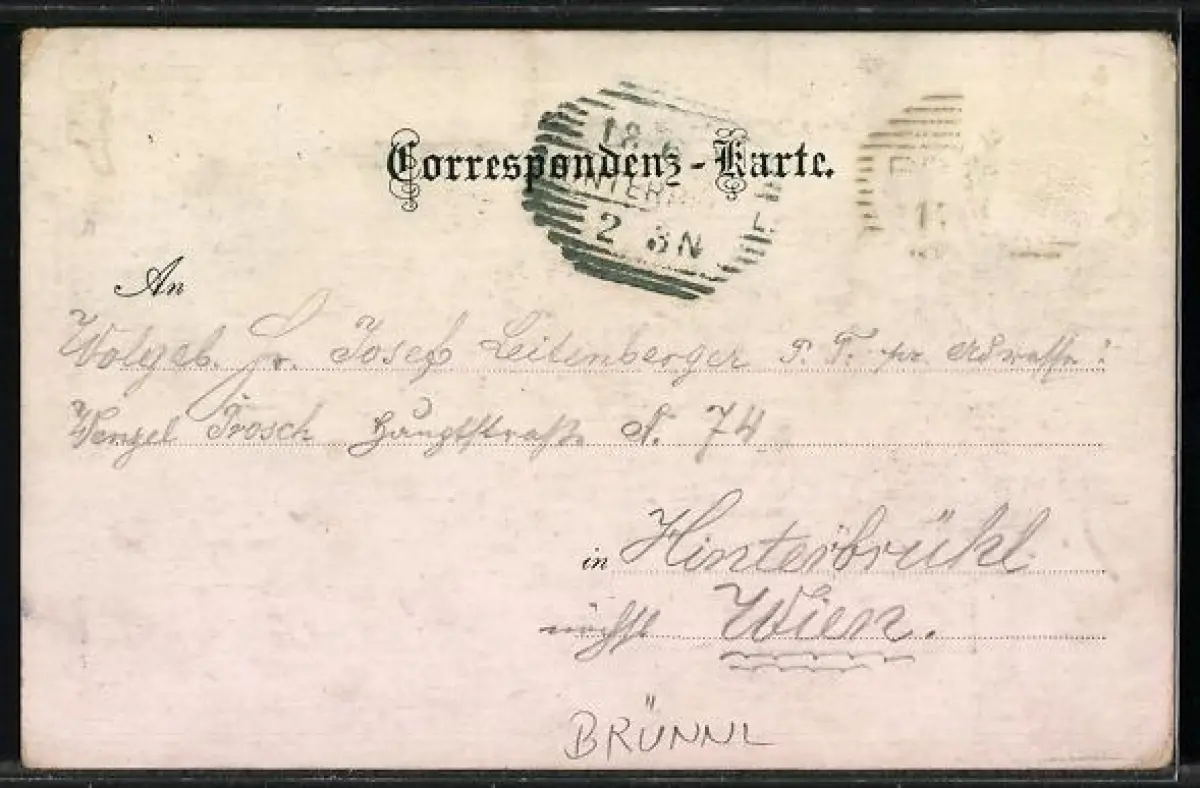 Correspondenz-Karte.
18
2 3N
An
Wolgeb. Hr. Josef Leitenberger P. T. pr. Adresse:
Wenzel Prosch Hauptstraße N. 74
in Hinterbrühl
nächst Wien.
BRÜNNL